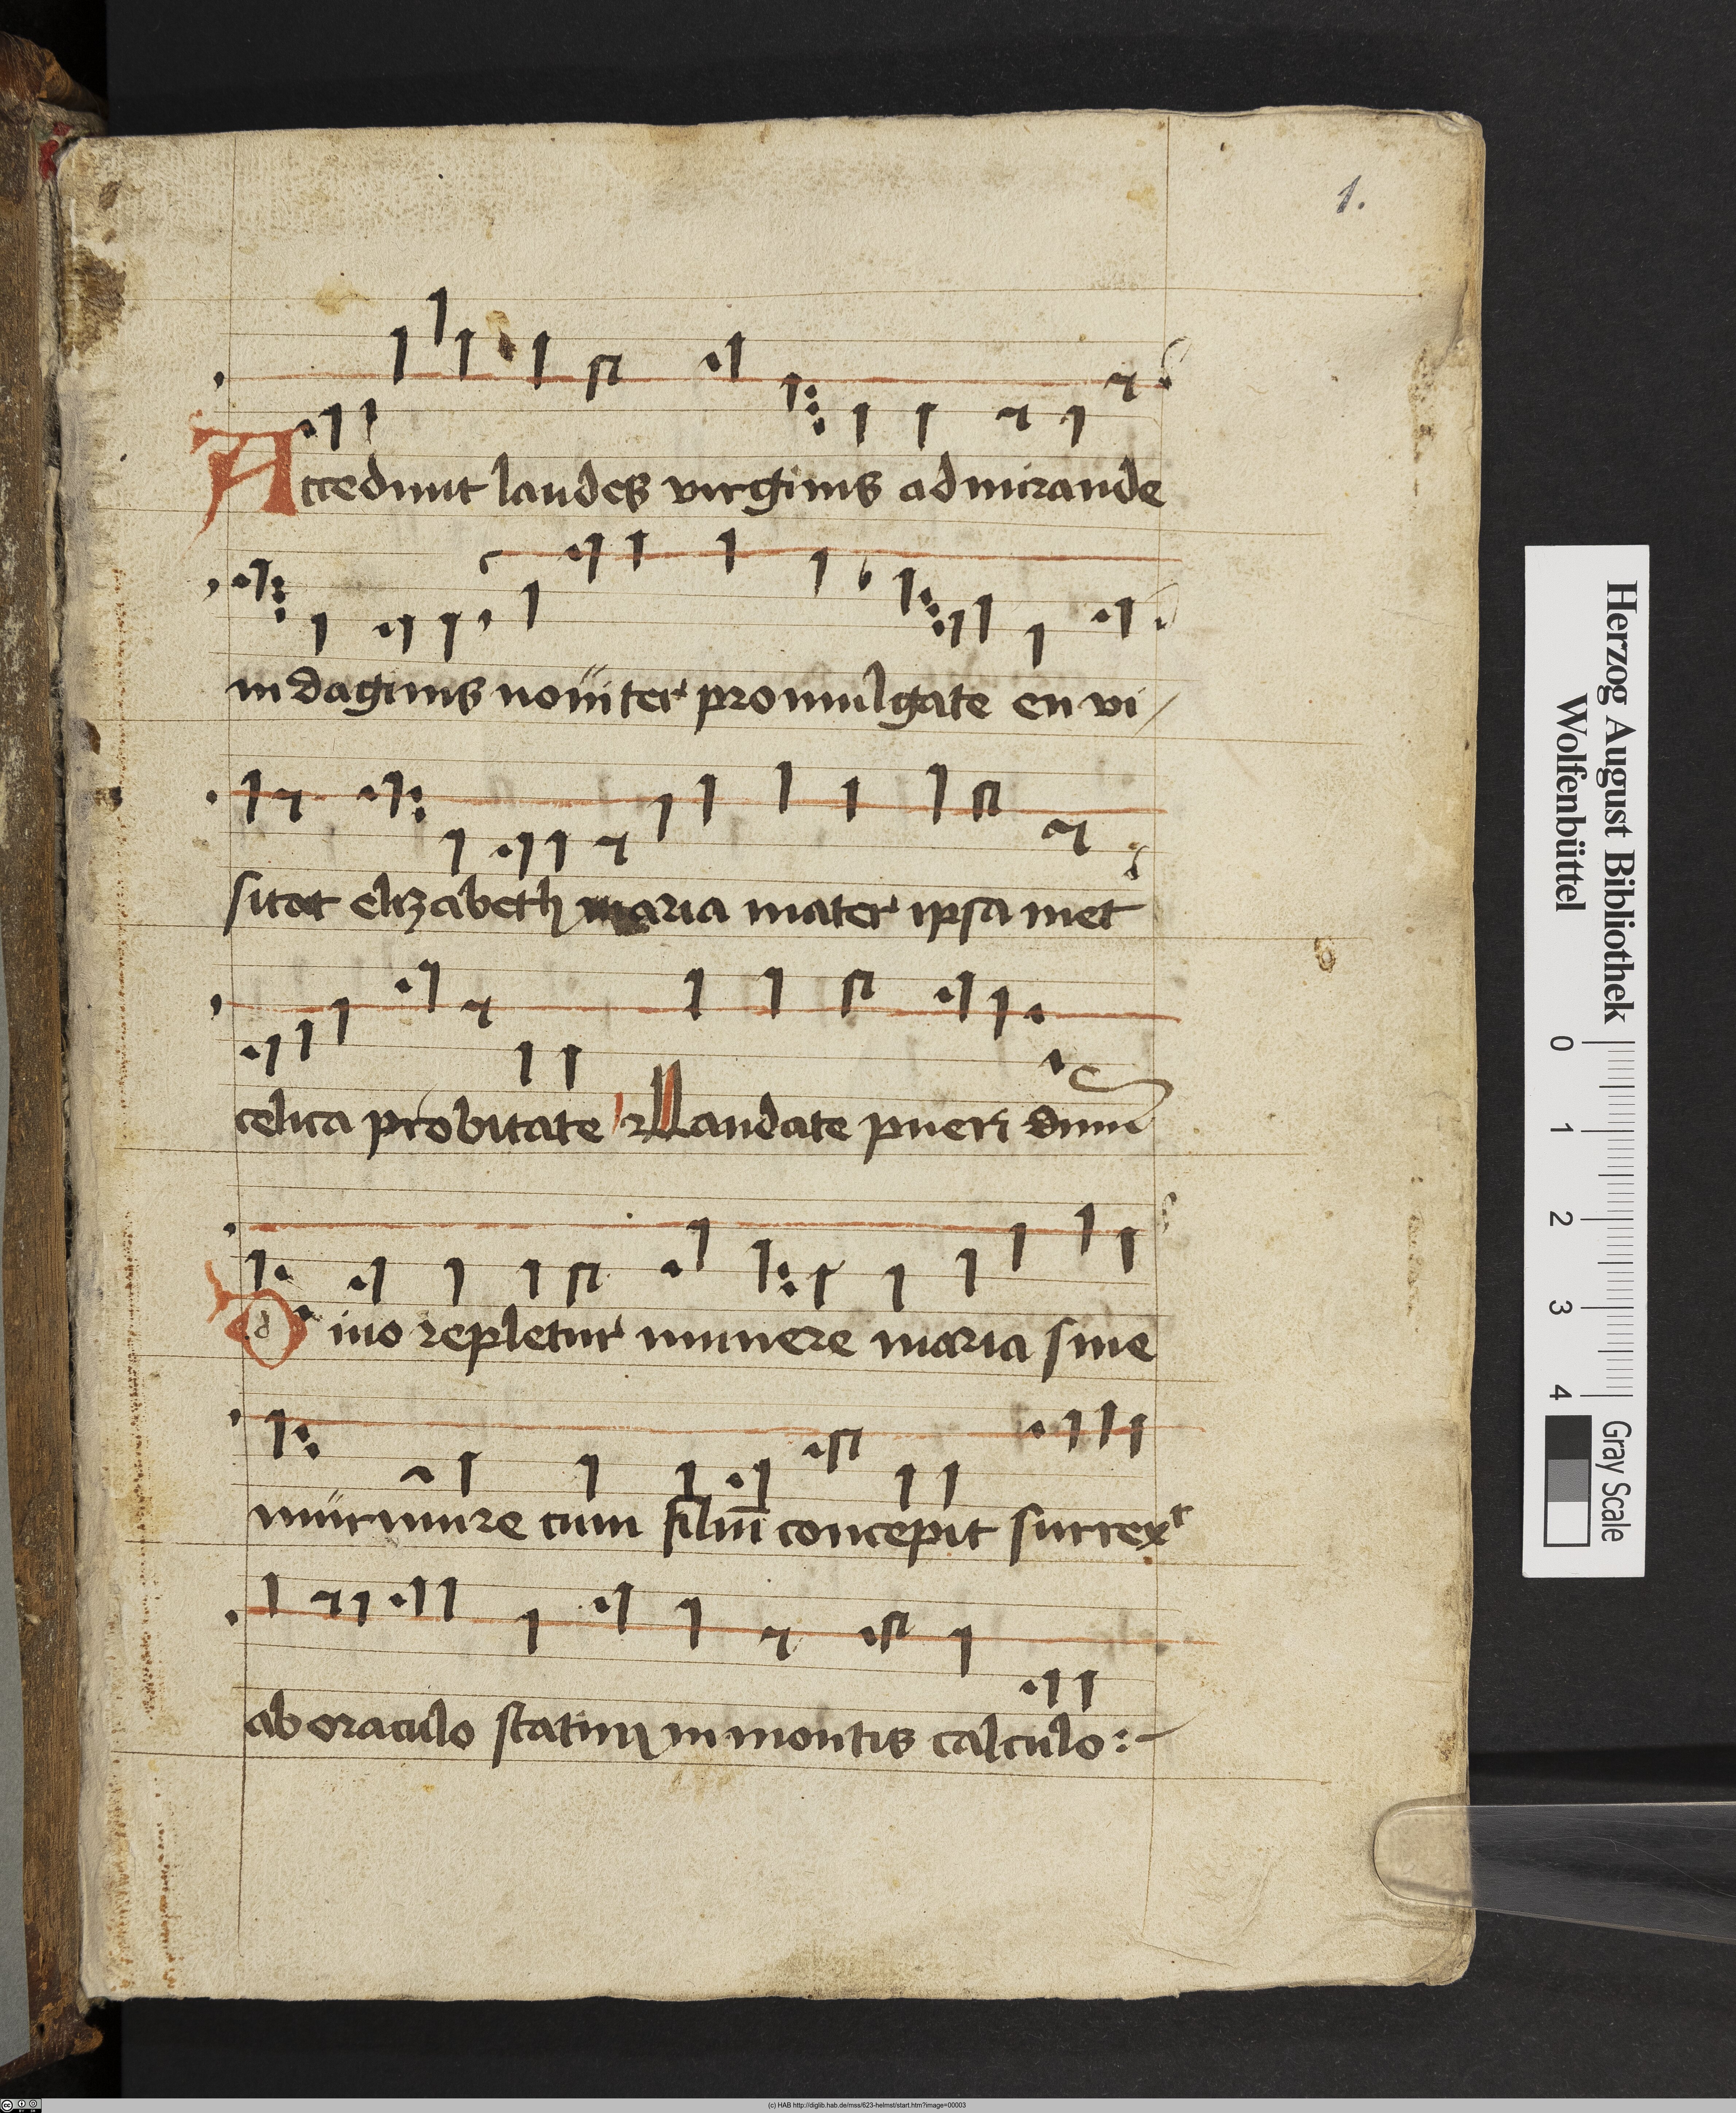 1.
Accedunt laudes virginis admirande
indaginis noviter promulgate en vi/
sitat elizabeth maria mater ipsa met
celica probitate Laudate pueri dnm
Divo repletur munere maria sine
murmure cum filiū concepit surrext
ab oraculo statim in montis calculo :-
Herzog August Bibliothek
Wolfenbüttel
0 1 2 3 4
Gray Scale
(c) HAB http://diglib.hab.de/mss/623-helmst/start.htm?image=00003